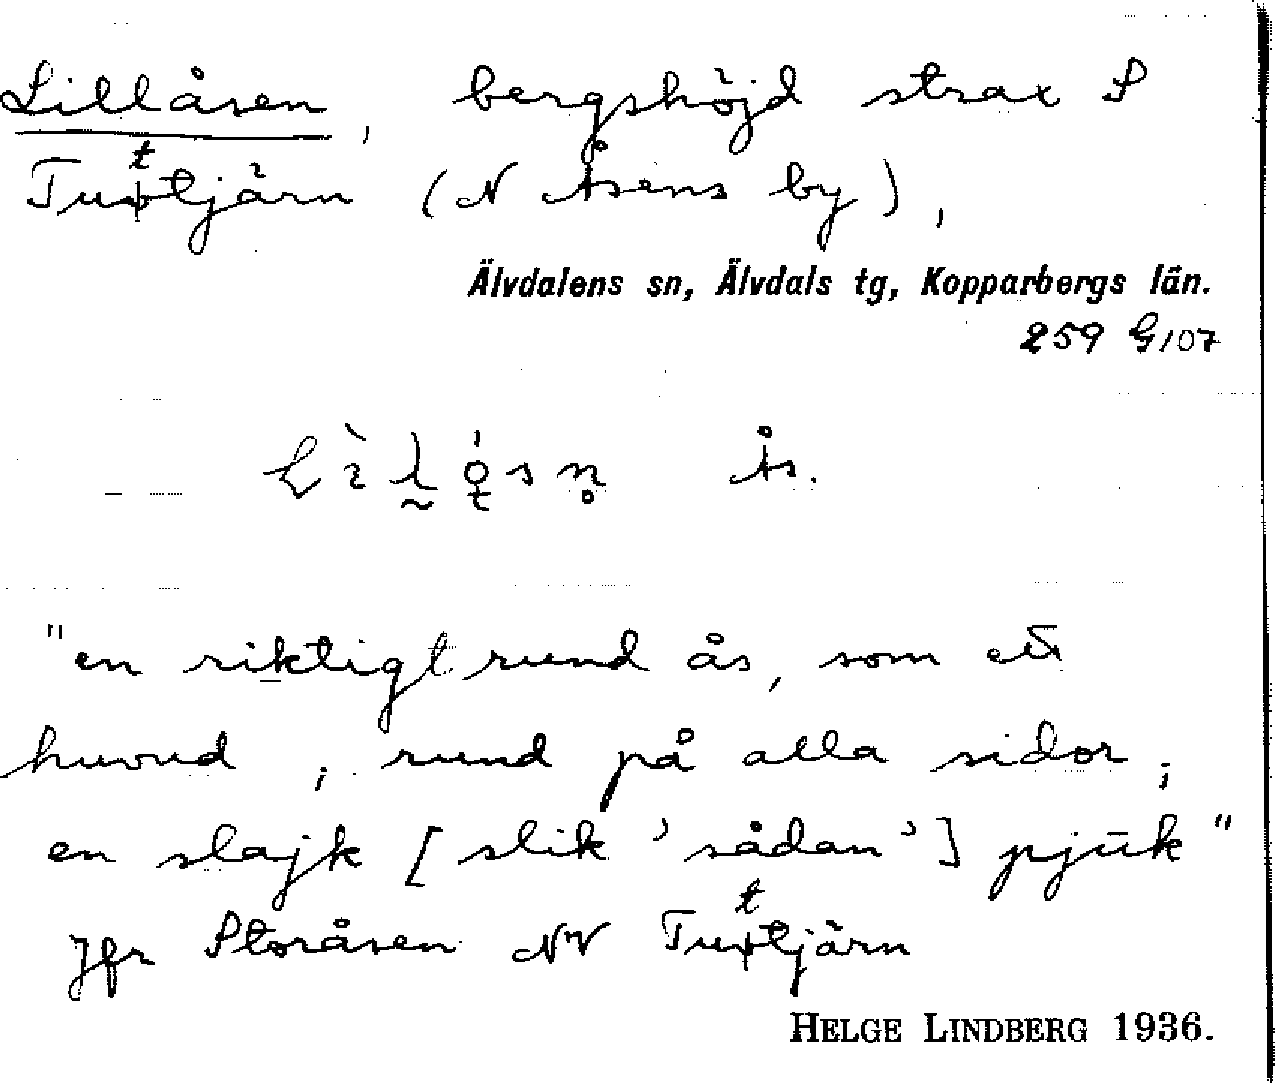 Lillåsen, bergshöjd strax S
Tuttjärn (N Åsens by),
Älvdalens sn, Älvdals tg, Kopparbergs län.
259 G107
Ås.
"en riktigt rund ås, som ett
huvud; rund på alla sidor;
en slajk [slik 'sådan'] pjuk"
Jfr Storåsen NV Tuttjärn
HELGE LINDBERG 1936.